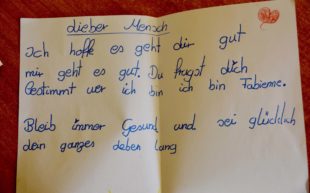 Lieber Mensch
Ich hoffe es geht dir gut
mir geht es gut. Du fragst dich
bestimmt wer ich bin ich bin Fabienne.
Bleib immer Gesund und sei glücklich
dein ganzes Leben lang